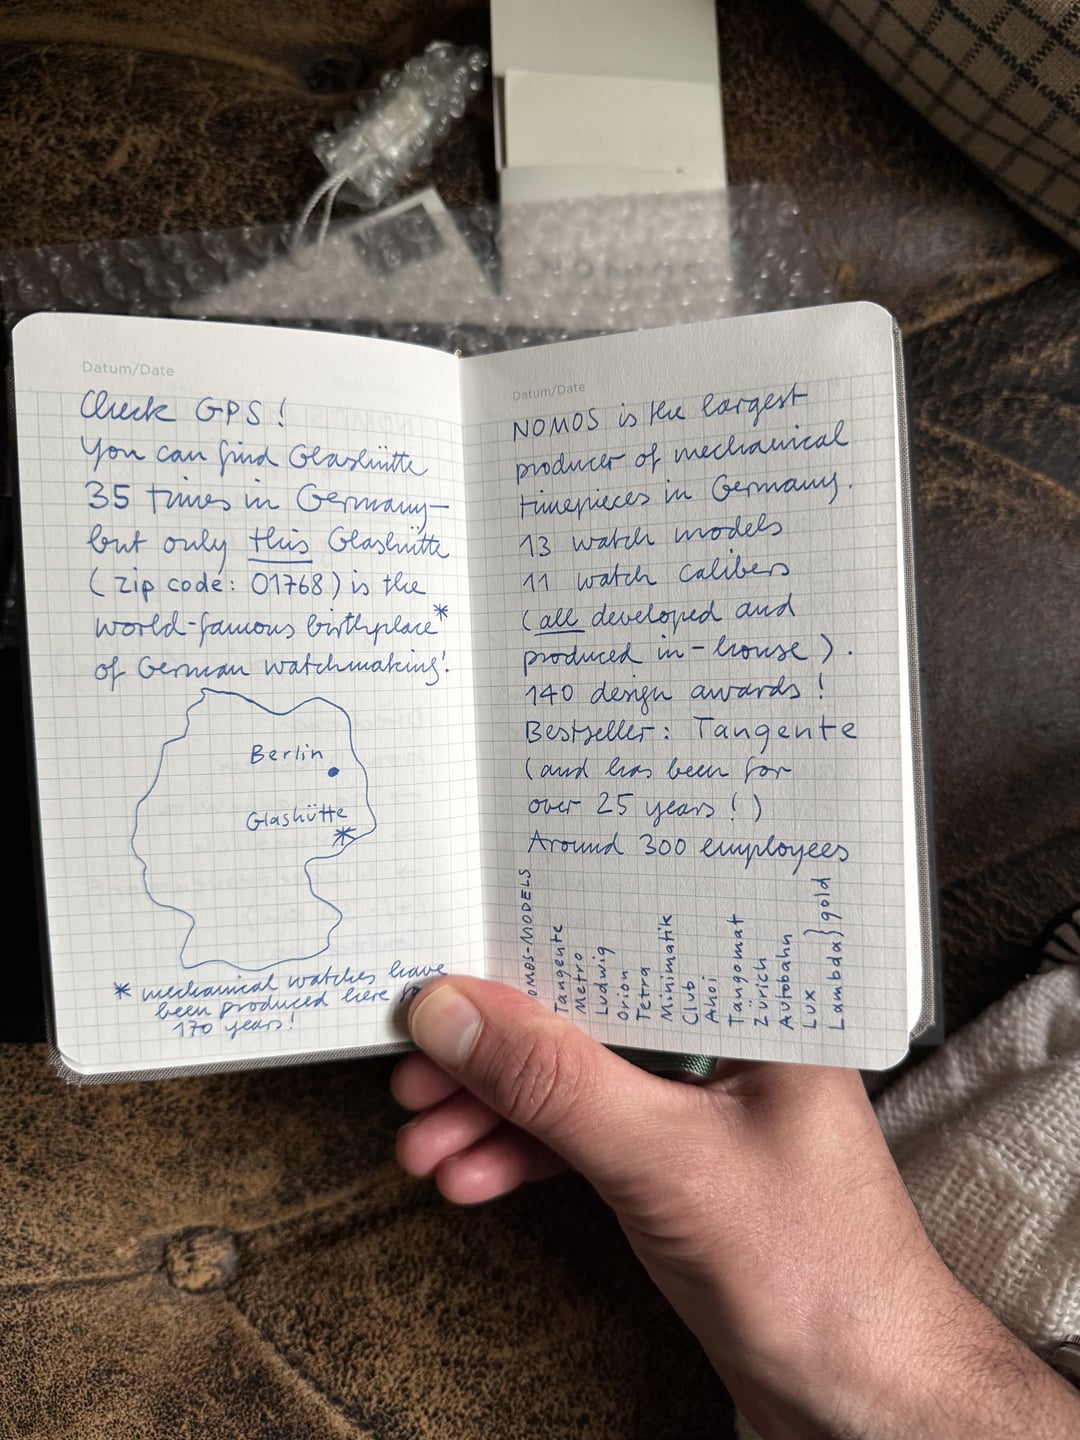 Datum/Date
Check GPS!
You can find Glashütte
35 times in Germany—
but only this Glashütte
(zip code: 01768) is the
world-famous birthplace*
of German watchmaking!
Berlin
Glashütte
* mechanical watches have
been produced here
170 years!
Datum/Date
NOMOS is the largest
producer of mechanical
timepieces in Germany.
13 watch models
11 watch calibers
(all developed and
produced in-house).
140 design awards!
Bestseller: Tangente
(and has been for
over 25 years!)
Around 300 employees
OMOS-MODELS
Tangente
Metro
Ludwig
Orion
Tetra
Minimatik
Club
Ahoi
Tangomat
Zürich
Autobahn
Lux
Lambda} gold